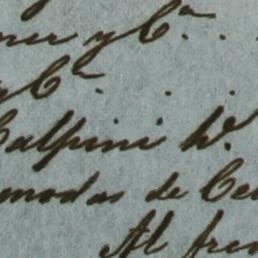 y Cª . . .
y Cª . . .
Calpini h.
modas de Ce
Al fren